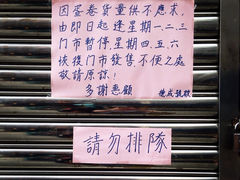 因蛋卷貨量供不應求，
由即日起逢星期一.二.三
门市暫停.星期四.五.六
恢後门市發售不便之處
敬請原諒！
多謝惠顧 德成號啟
請勿排隊